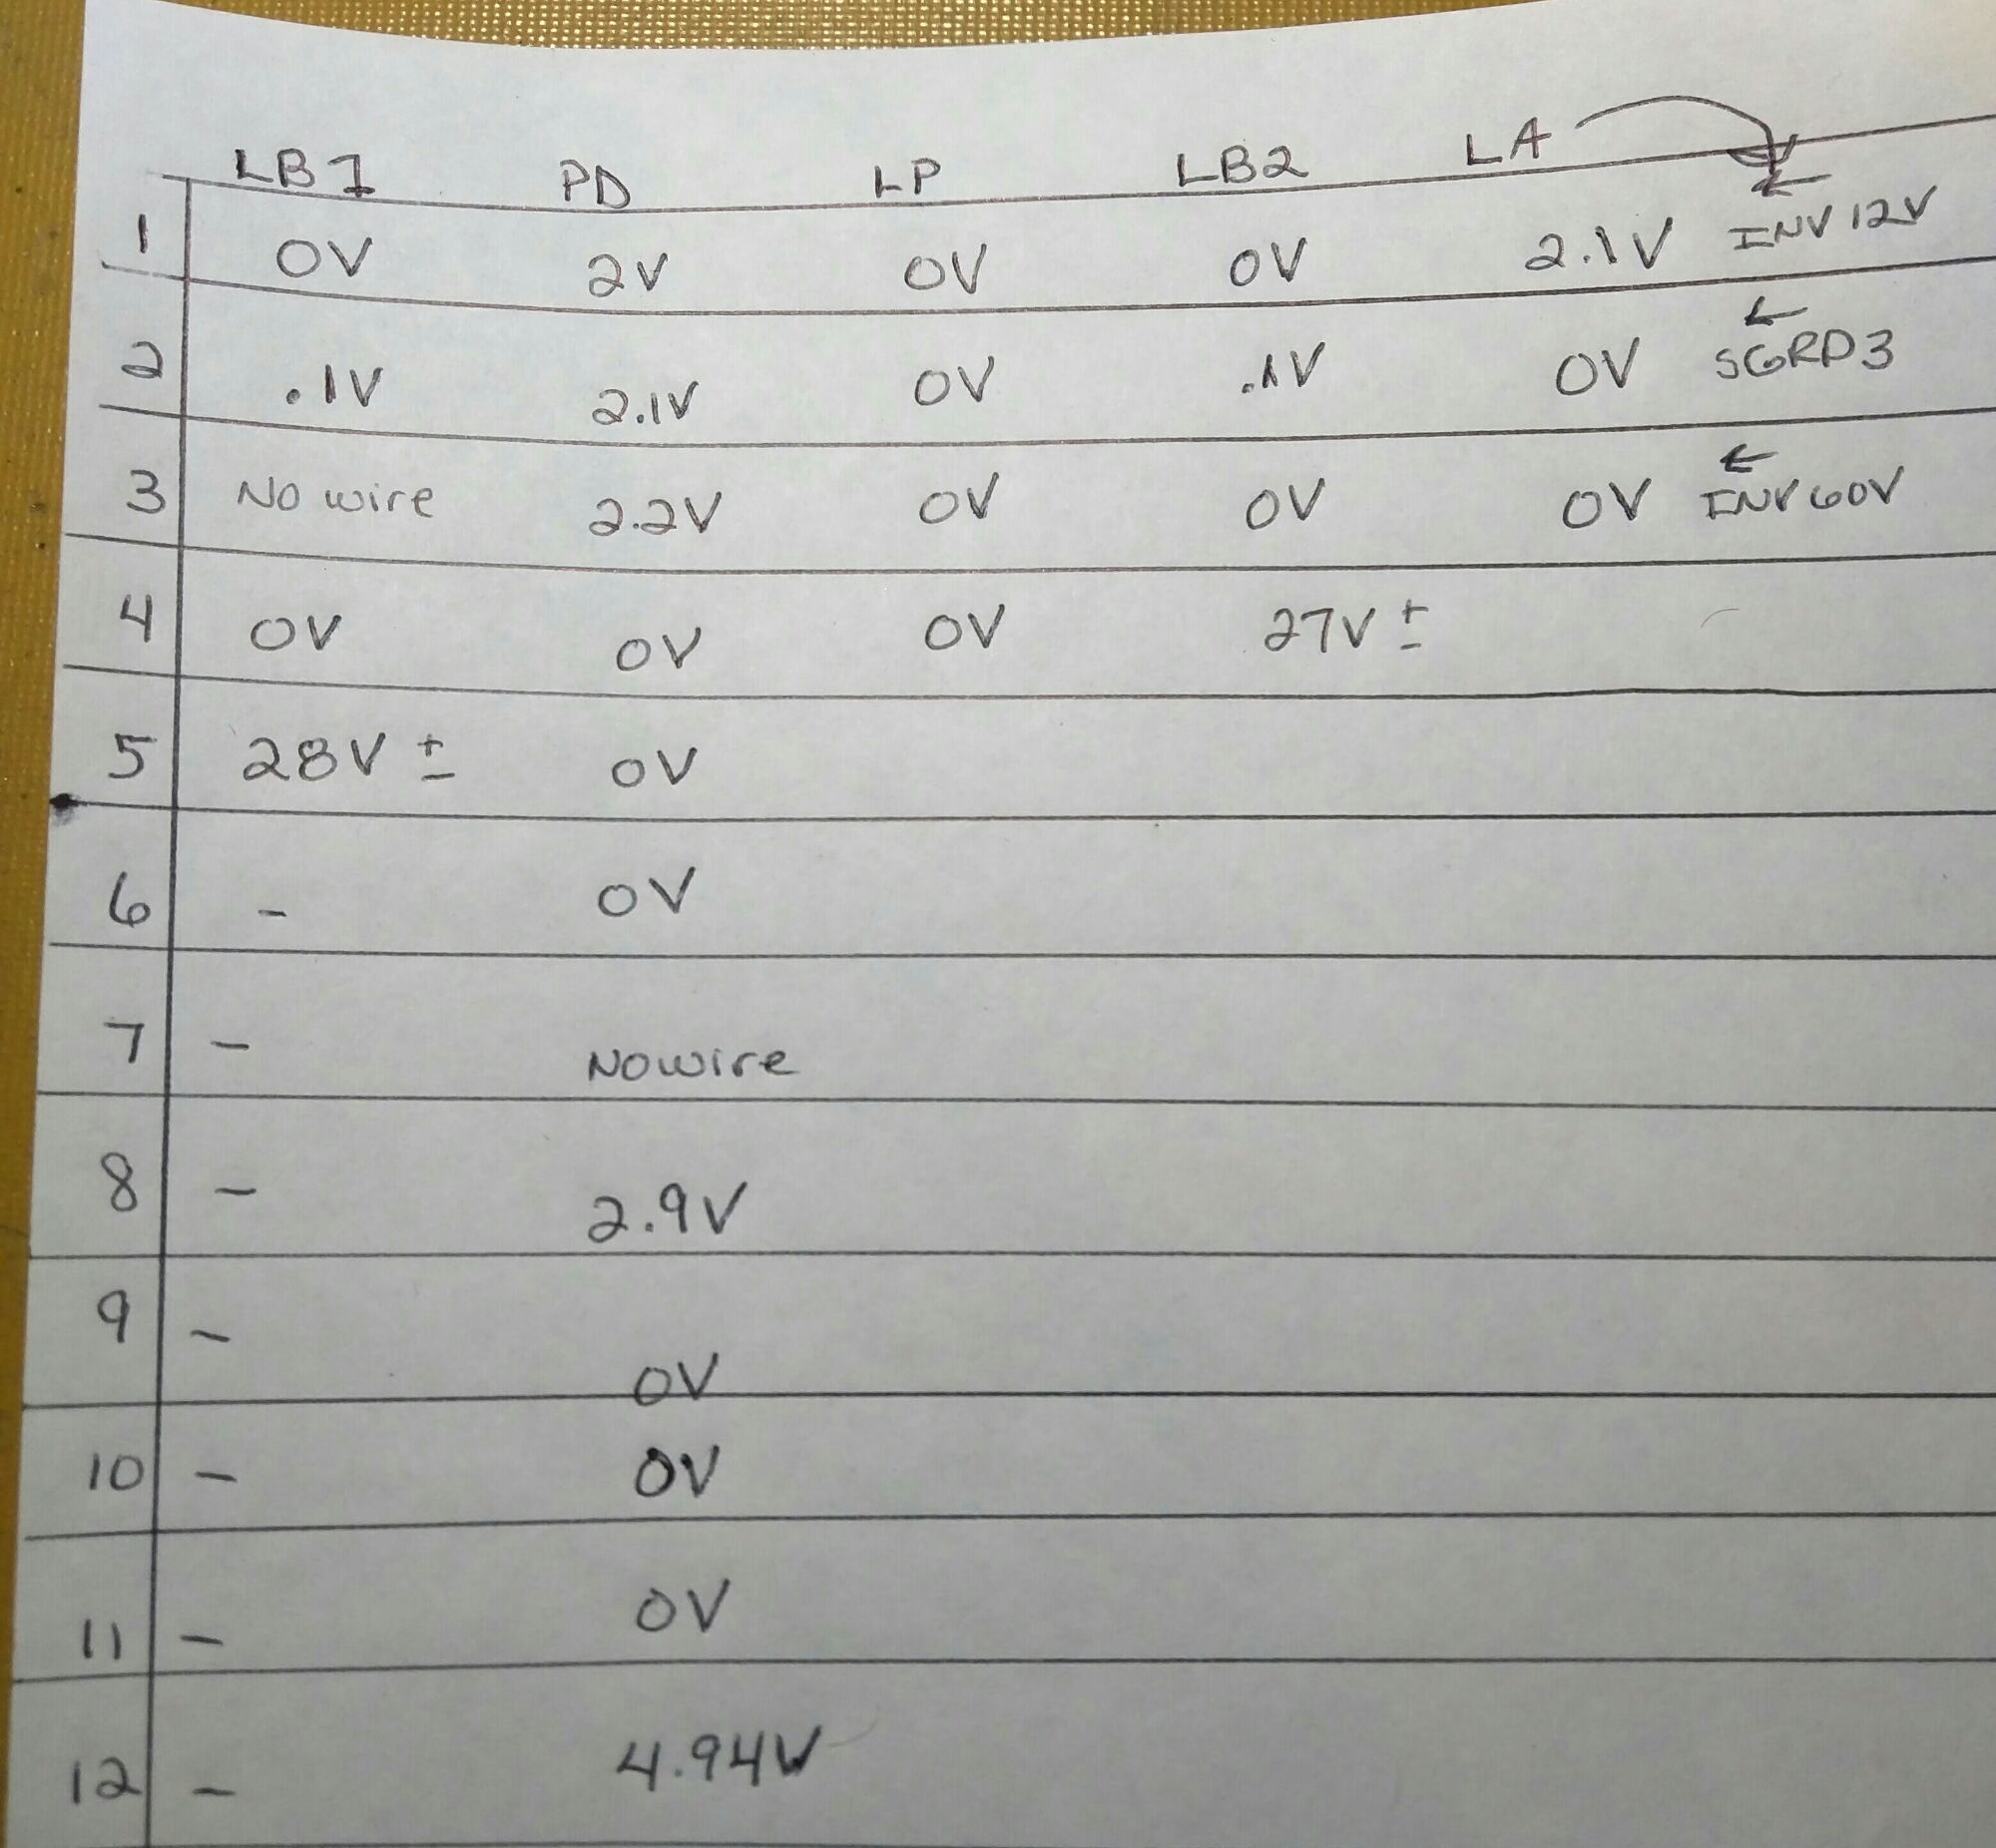 LB1 PD LP LB2 LA
1 0V 2V 0V 0V 2.1V ← INV 12V
2 .1V 2.1V 0V .1V 0V ← SGRD3
3 No wire 2.2V 0V 0V 0V ← INV 60V
4 0V 0V 0V 27V ±
5 28V ± 0V
6 - 0V
7 - No wire
8 - 2.9V
9 - 0V
10 - 0V
11 - 0V
12 - 4.94V